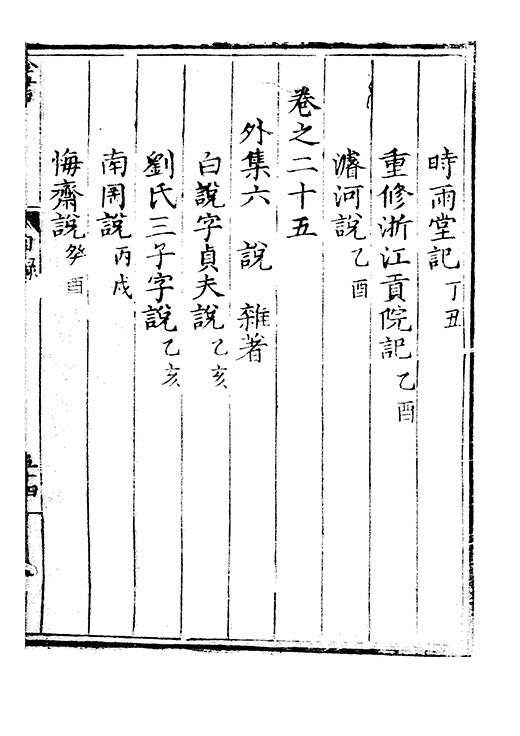 時雨堂記丁丑
重修浙江貢院記乙酉
濬河說乙酉
卷之二十五
外集六 說 雜著
白說字貞夫說乙亥
劉氏三子字說乙亥
南岡說丙戌
悔齋說癸酉
目錄
五十四